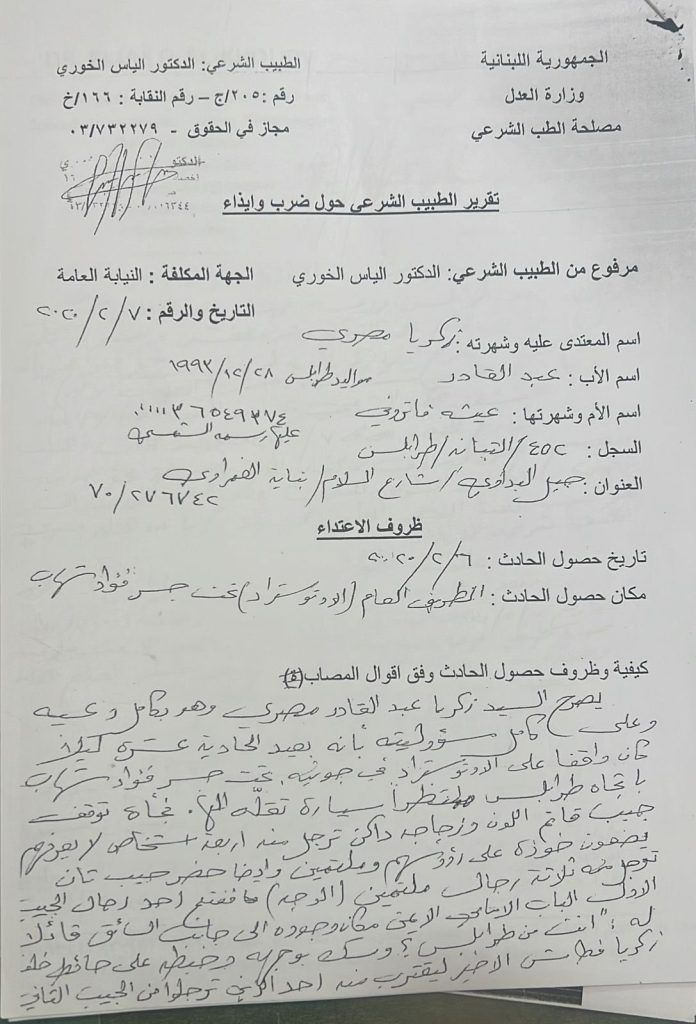 الجمهورية اللبنانية
وزارة العدل
مصلحة الطب الشرعي
الطبيب الشرعي: الدكتور الياس الخوري
رقم :٢٠٥/ج – رقم النقابة : ١٦٦/خ
مجاز في الحقوق - ٠٣/٧٣٢٢٧٩
الدكتو
تقرير الطبيب الشرعي حول ضرب وايذاء
مرفوع من الطبيب الشرعي: الدكتور الياس الخوري
الجهة المكلفة : النيابة العامة
التاريخ والرقم : ٢٠٢٠/٢/٧
اسم المعتدى عليه وشهرته : زكريا مصري
اسم الأب : عبد القادر مواليد طرابلس ١٩٩٣/١٢/٢٨
اسم الأم وشهرتها : عيشه
السجل : ٤٥٢/التبانه/طرابلس
العنوان : جبل البداوي/شارع السلام/بناية
٧٠/٢٧٦٧٤٢
ظروف الاعتداء
تاريخ حصول الحادث : ٢٠٢٠/٢/٦
مكان حصول الحادث : الطريق العام (الاوتوستراد) تحت جسر فؤاد شهاب
كيفية وظروف حصول الحادث وفق اقوال المصاب(ة)
يصرح السيد زكريا عبد القادر مصري وهو بكامل وعيه
وعلى كامل مسؤوليته بأنه بعيد الحادية عشرة ليلاً
كان واقفا على الاوتوستراد في جونيه تحت جسر فؤاد شهاب
باتجاه طرابلس منتظراً سيارة تقلّه الى. فجأة توقفت
جيب قاتم اللون وزجاجه داكن ترجل منه اربعة اشخاص لا يعرفهم
يضعون خوذة على رؤوسهم وملثمين وايضا حضر جيب ثان
ترجل منه ثلاثة رجال ملثمين (الوجه) ففتح احد رجال الجيب
الاول الباب الامامي الايمن مكان وجوده الى جانب السائق قائلاً
له: "انت من طرابلس؟ ومسك بوجهه وخبطه على حائط خلف
زكريا الاخير ليقترب منه احد الذين ترجلوا من الجيب الثاني